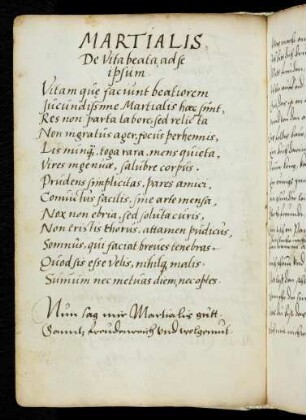 MARTIALIS
De Vita beata, ad se
ipsum.
Vitam quę faciunt beatiorem
Jucundissime Martialis hæc sunt,
Res non parta labore, sed relicta
Non ingratus ager, focus perhennis,
Lis nunq̃, toga rara, mens quieta,
Vires ingenuæ, salubre corpus.
Prudens simplicitas, pares amici,
Conuictus facilis, sine arte mensa,
Nox non ebria, sed soluta curis,
Non tristis thorus, attamen pudicus,
Somnus, qui faciat breues tenebras.
Quod sis esse velis, nihilq̃ malis.
Summum nec metuas diem, nec optes.
Nun sag mir Martialis gutt
freudenreich und wolgemut